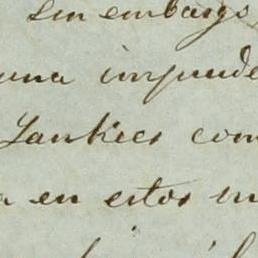 sin embargo
una impude
Yankees com
a en estos m